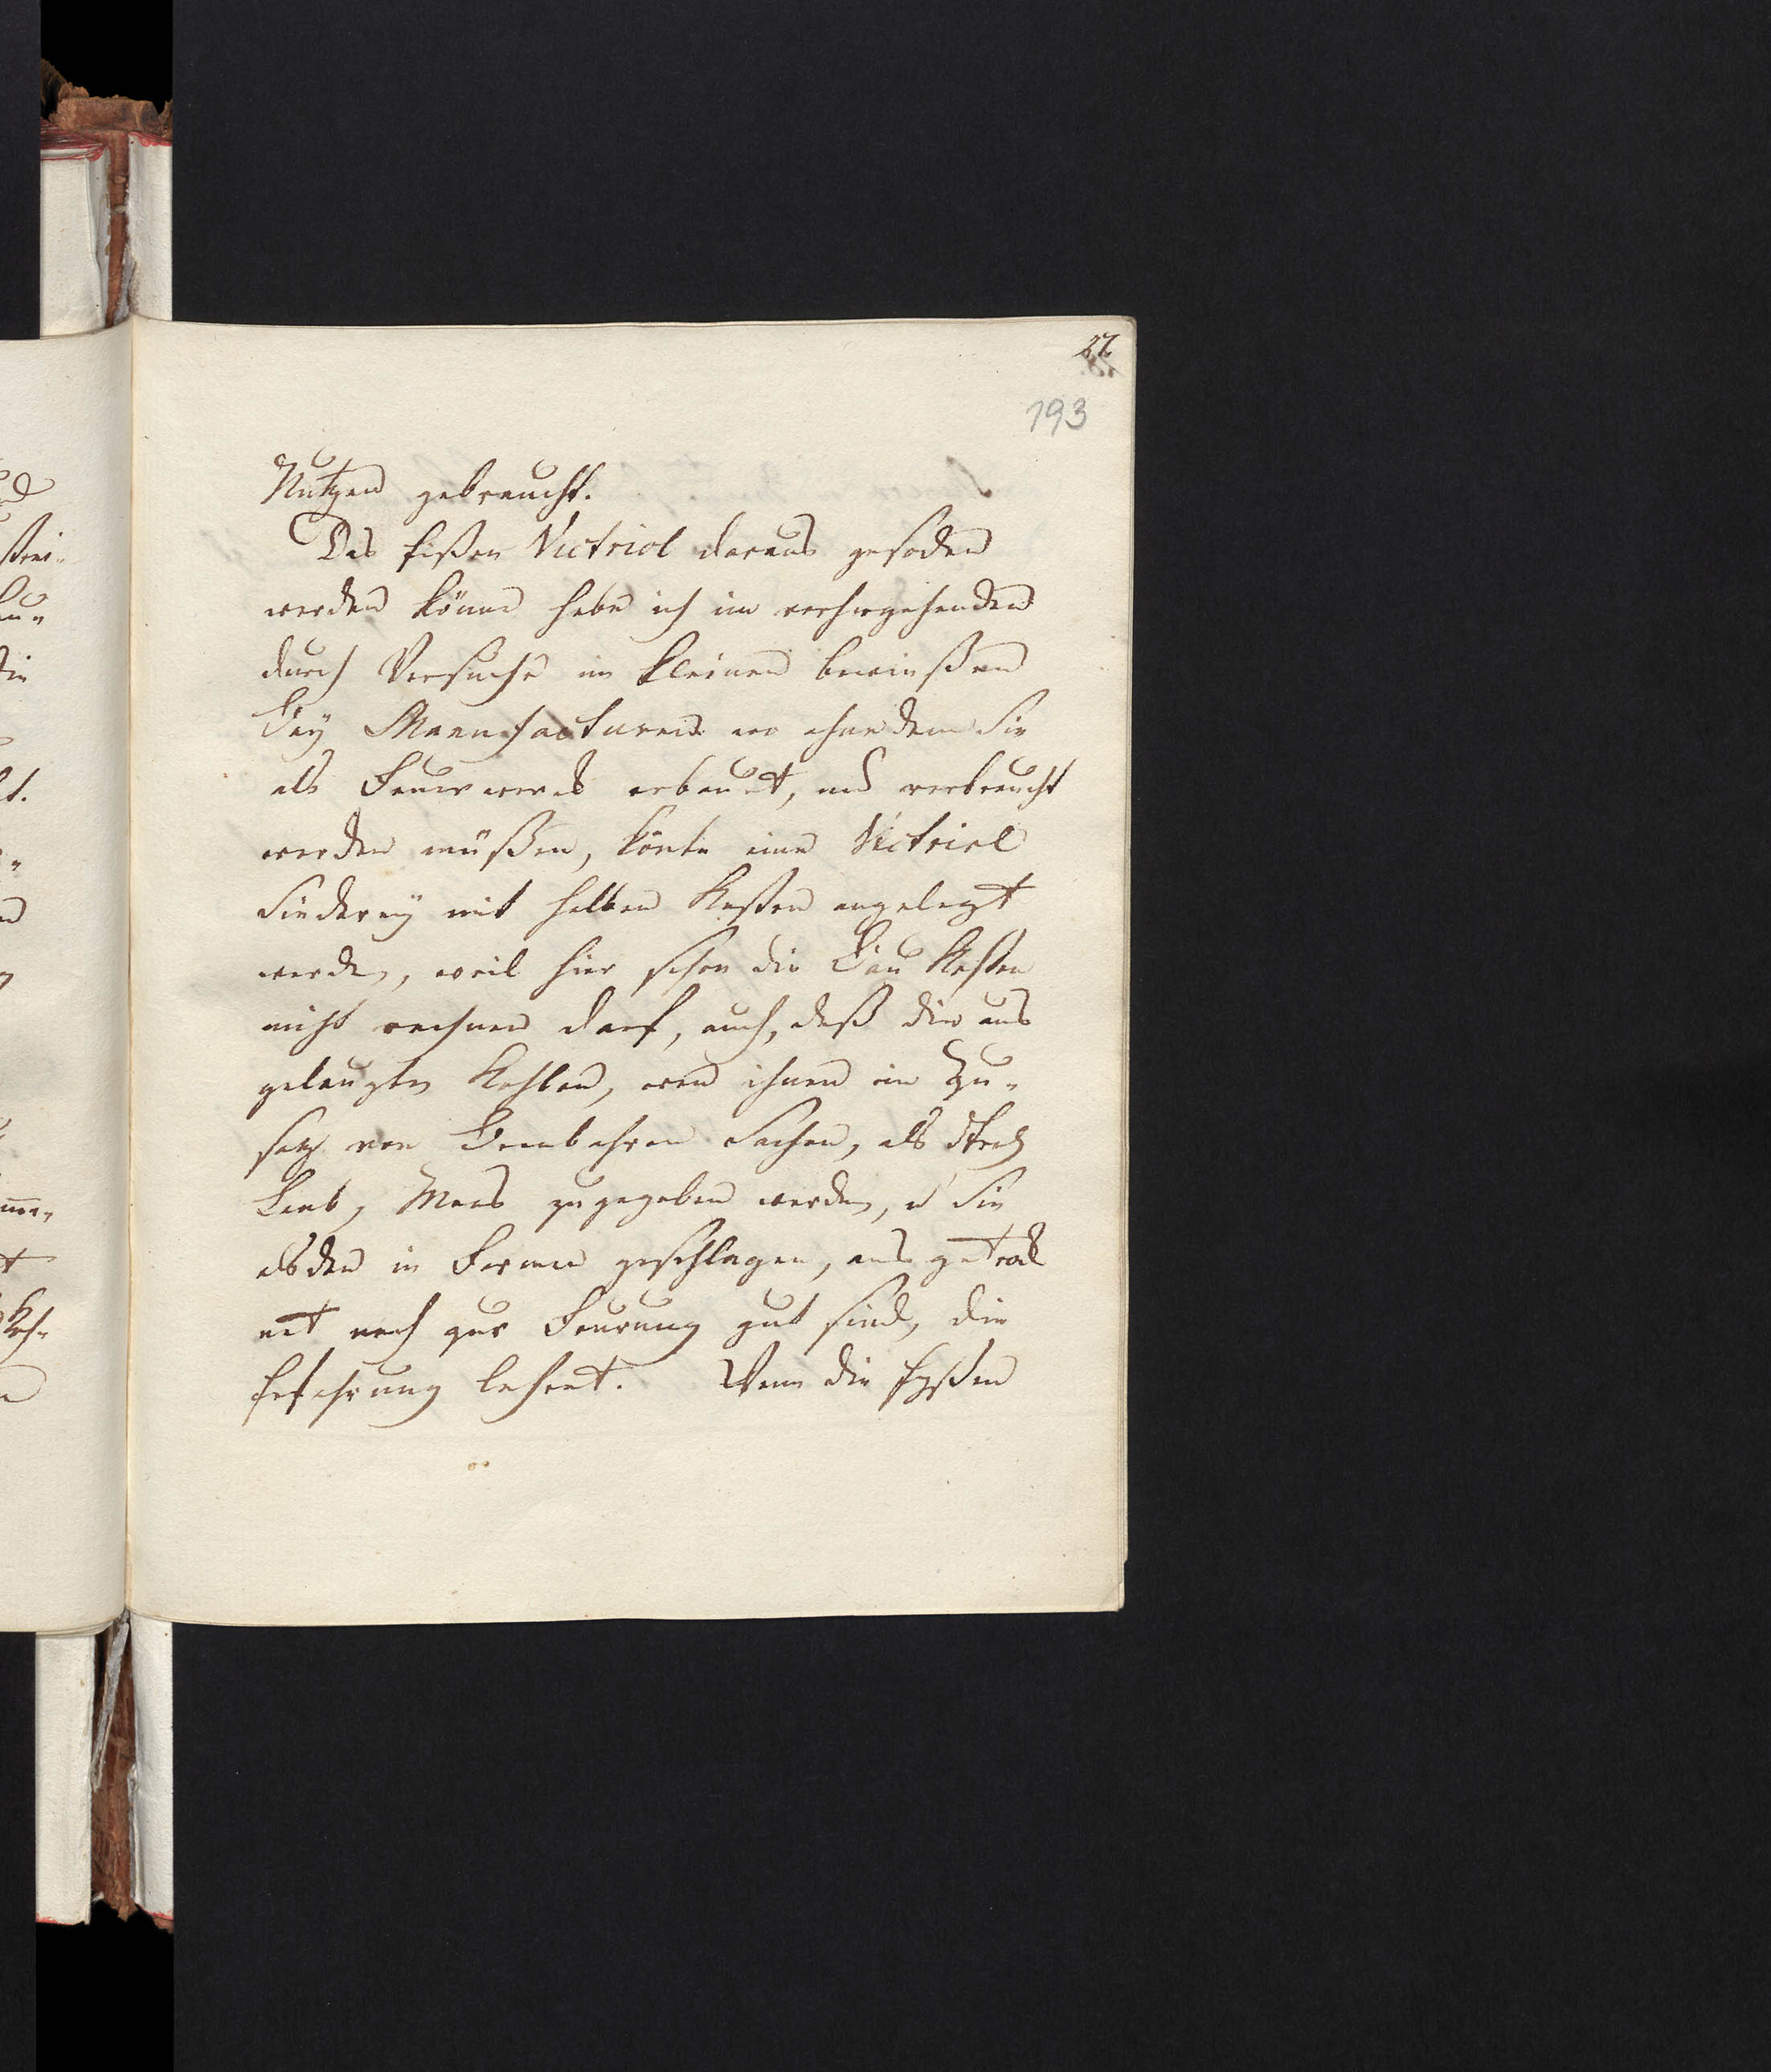 27.
193
Nutzen gebraucht.
Das Eißen Victriol daraus gesoden
werden könne habe ich im vorhergehenden
durch Versuche im kleinen bewießen
Bey Manufacturen wo ohne dem Sie
als Feuerwerck erbauet, und verbraucht
werden müßen, könte eine Victriol
Siederey mit halben Kosten angelegt
werden, weil hier schon die Bau Kosten
nicht rechnen darf, auch, daß die aus
gelaugten Kohlen, wen ihnen ein Zu-
satz von Brenbahren Sachen, als
Laub, Moos zugegeben werden, u Sie
alsden in Formen geschlagen, und getrock
net noch zur Feurung gut sind, die
Erfahrung lehret. Wenn die Eyßen